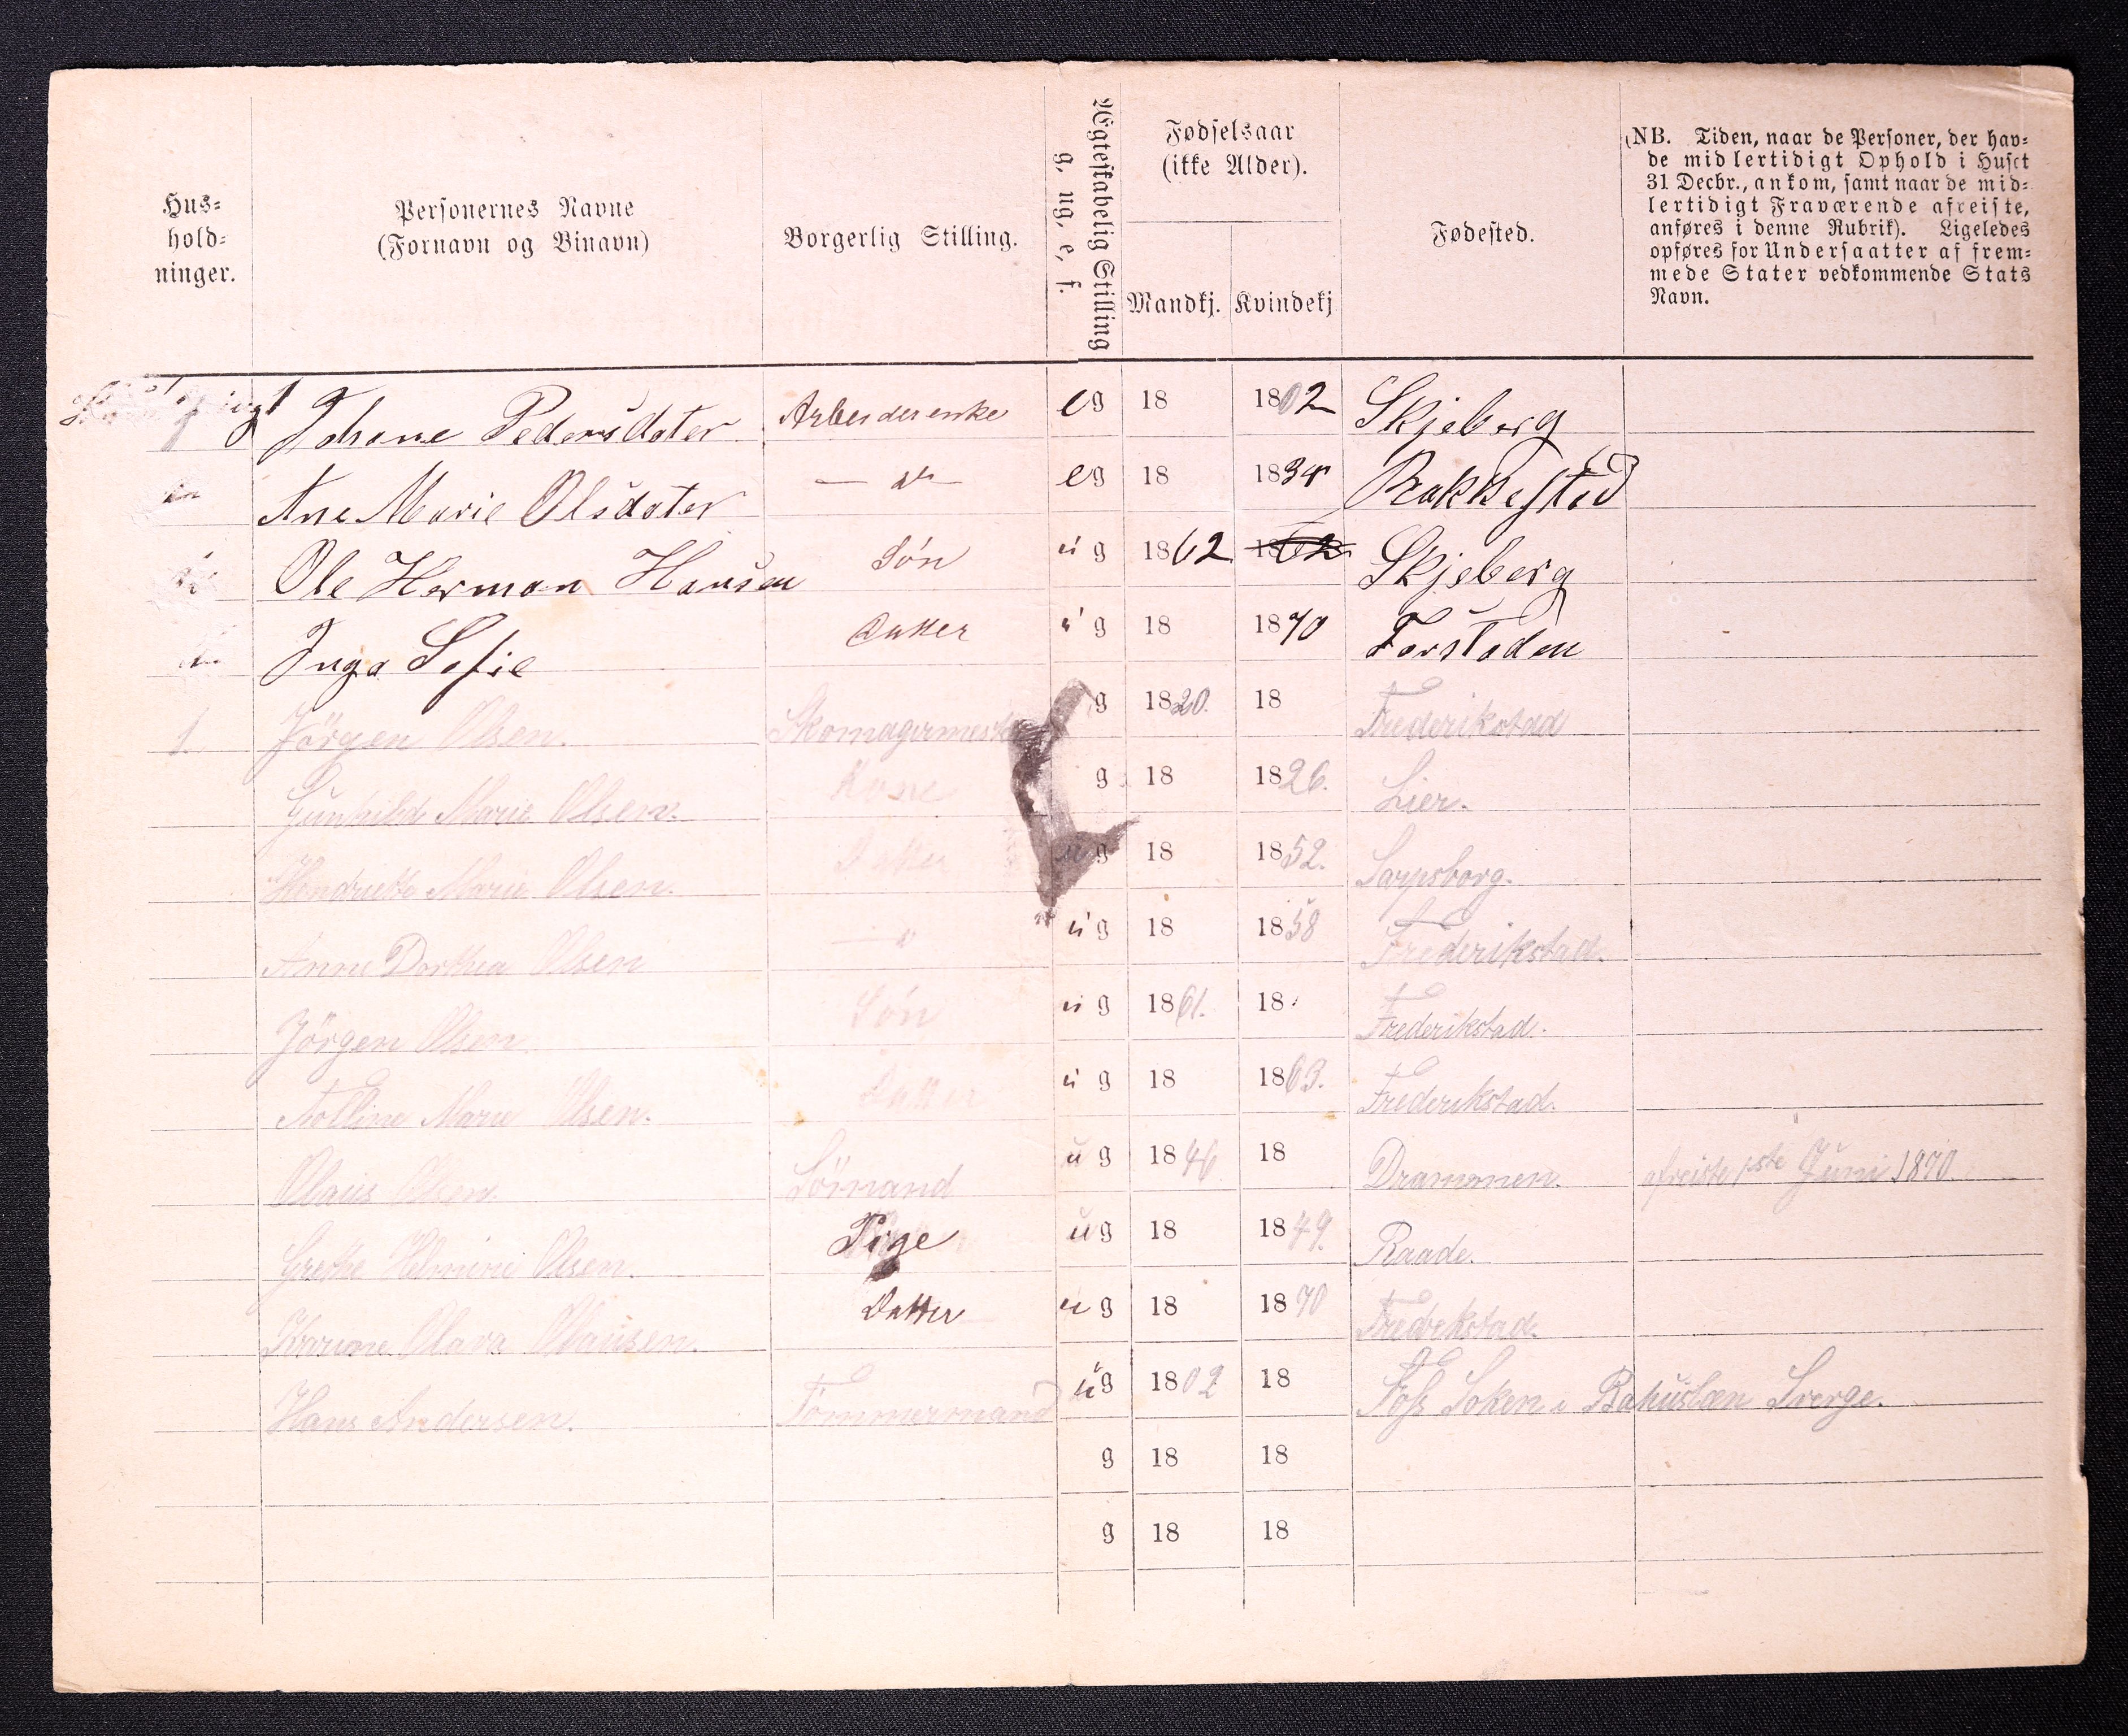 Hus-
hold-
ninger.
Personernes Navne
(Fornavn og Binavn)
Borgerlig Stilling.
Ægteskabelig Stilling
g, ug, e, f.
Fødselsaar
(ikke Alder).
Mandkj. Kvindekj
Fødested.
(NB. Tiden, naar de Personer, der hav-
de midlertidigt Ophold i Huset
31 Decbr., ankom, samt naar de mid-
lertidigt Fraværende afreiste,
anføres i denne Rubrik). Ligeledes
opføres for Undersaatter af frem-
mede Stater vedkommende Stats
Navn.
Johane Pedersdater Arbeiderenke eg 18 1802 Skjeberg
Ane Marie Olsdater eg 18 1834 Rakkested
Ole Herman Hansen Søn ug 1862 1862 Skjeberg
Inga Sofie Datter ug 18 1870 Forstaden
1 Jörgen Olsen. Skomagermester g 1820. 18 Frederikstad
Gunhild Marie Olsen. Kone g 18 1826. Lier.
Hendrikke Marie Olsen. Datter ug 18 1852. Sarpsborg.
Anne Dorthea Olsen — " ug 18 1858 Frederikstad.
Jörgen Olsen Søn ug 1861. 18 Frederikstad.
Marie Olsen. Datter ug 18 1863. Frederikstad.
Olaus Olsen. Sömand ug 1846 18 Drammen. afreiste 1ste Juni 1870.
Grethe Helmine Olsen. Pige ug 18 1849. Raade.
Karine Olava Olausen. Datter ug 18 1870 Fredrikstad.
Hans Andersen. Tömmermand ug 1802 18 Foss Soken i Bahuslæn Sverge.
g 18 18
g 18 18